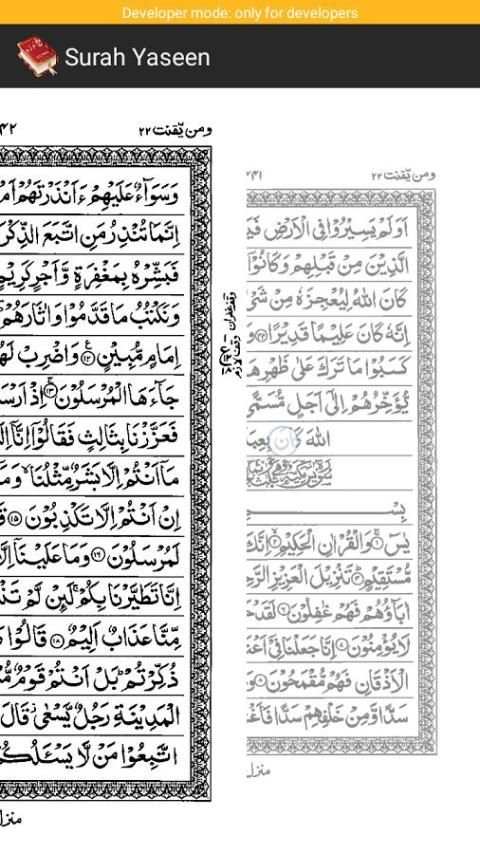 Developer mode: only for developers
Surah Yaseen
ومن یّقنت ۲۲
۴۲
وَسَوَآءٌ عَلَيْهِمْ ءَاَنْذَرْتَهُمْ اَمْ
اِنَّمَا تُنْذِرُ مَنِ اتَّبَعَ الذِّكْرَ
فَبَشِّرْهُ بِمَغْفِرَةٍ وَّاَجْرٍ كَرِيْمٍ
وَنَكْتُبُ مَا قَدَّمُوْا وَاٰثَارَهُمْ
اِمَامٍ مُّبِيْنٍ ۱۲ وَاضْرِبْ لَهُ
جَآءَهَا الْمُرْسَلُوْنَ ۱۳ اِذْ اَرْسَ
فَعَزَّزْنَا بِثَالِثٍ فَقَالُوْٓا اِنَّآ اِلَ
مَآ اَنْتُمْ اِلَّا بَشَرٌ مِّثْلُنَا وَمَ
اِنْ اَنْتُمْ اِلَّا تَكْذِبُوْنَ ۱۵ قَ
لَمُرْسَلُوْنَ ۱۶ وَمَا عَلَيْنَآ اِلَّ
اِنَّا تَطَيَّرْنَا بِكُمْ لَئِنْ لَّمْ تَنْ
مِّنَّا عَذَابٌ اَلِيْمٌ ۱۸ قَالُوْا
ذُكِّرْتُمْ بَلْ اَنْتُمْ قَوْمٌ مُّ
الْمَدِيْنَةِ رَجُلٌ يَّسْعٰى قَالَ
اتَّبِعُوْا مَنْ لَّا يَسْـَٔلُكُمْ
منزل
ومن یّقنت ۲۲
۴۴۱
اَوَلَمْ يَسِيْرُوْا فِى الْاَرْضِ فَيَ
الَّذِيْنَ مِنْ قَبْلِهِمْ وَكَانُوْٓا
كَانَ اللّٰهُ لِيُعْجِزَهٗ مِنْ شَىْ
اِنَّهٗ كَانَ عَلِيْمًا قَدِيْرًا ۴۴ وَ
كَسَبُوْا مَا تَرَكَ عَلٰى ظَهْرِهَا
يُّؤَخِّرُهُمْ اِلٰٓى اَجَلٍ مُّسَمًّى
اللّٰهَ كَانَ بِعِبَا
بِسْـــــــ
يٰسٓ ۱ وَالْقُرْاٰنِ الْحَكِيْمِ ۲ اِنَّكَ
مُّسْتَقِيْمٍ ۴ تَنْزِيْلَ الْعَزِيْزِ الرَّحِ
اٰبَآؤُهُمْ فَهُمْ غٰفِلُوْنَ ۶ لَقَدْ حَ
لَا يُؤْمِنُوْنَ ۷ اِنَّا جَعَلْنَا فِىْٓ اَعْنَ
الْاَذْقَانِ فَهُمْ مُّقْمَحُوْنَ ۸ وَ
سَدًّا وَّمِنْ خَلْفِهِمْ سَدًّا فَاَغْ
منزل